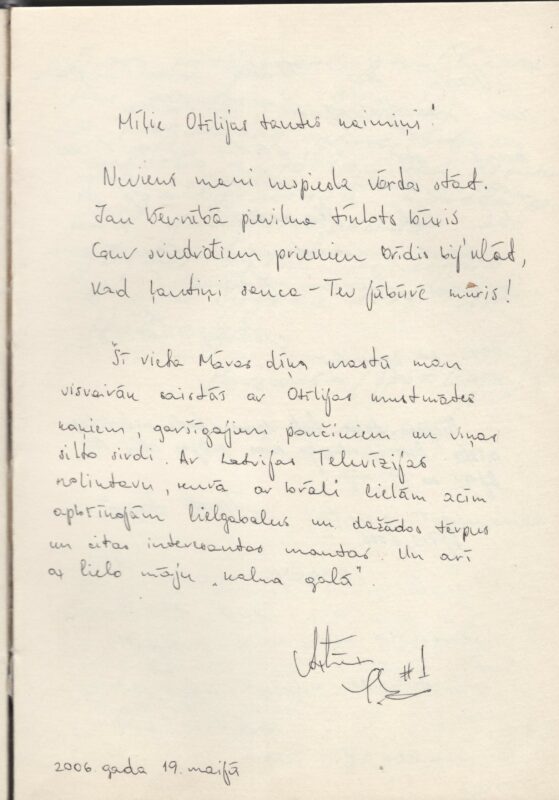 Mīļie Otīlijas tantes kaimiņi!
Neviens mani nespieda vārdos stāt.
Jau bērnībā pievilna tīrlots būris
Caur sviedrotiem priekiem brīdis bij' klāt,
Kad ļautiņi sauca – Tev jābūvē mūris!
Šī vieta Māras dīķa krastā man
visvairāk saistās ar Otīlijas krustmātes
kaķiem, garšīgajiem pončikiem un viņas
silto sirdi. Ar Latvijas Televīzijas
noliktavu, kurā ar brāli lielām acīm
aplūkojām lielgabalus un dažādos tērpus
un citas interesantas mantas. Un arī
ar lielo māju „kalna galā".
#1
2006. gada 19. maijā